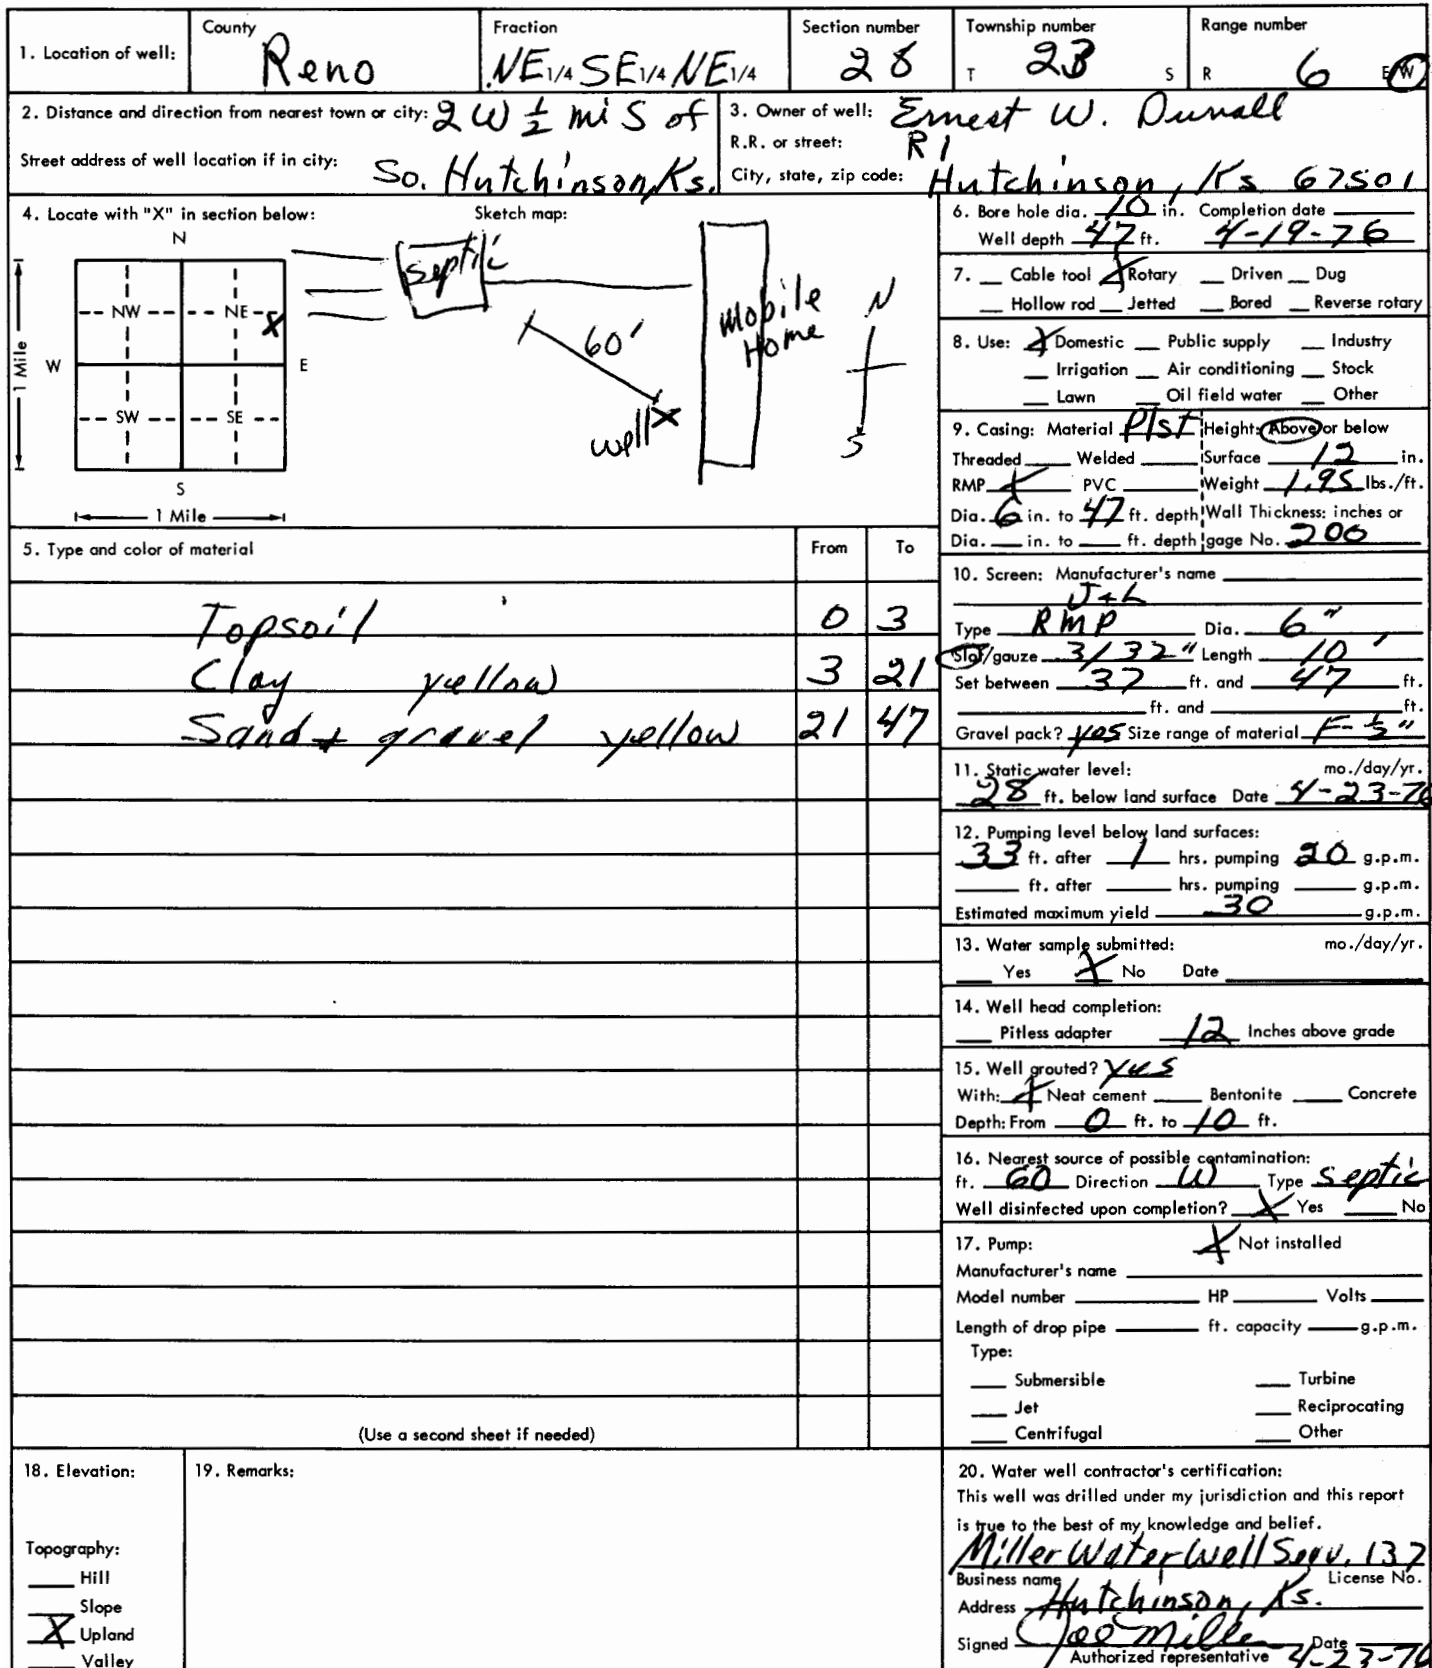 1. Location of well: County Reno Fraction NE 1/4 SE 1/4 NE 1/4 Section number 28 Township number T 23 S Range number R 6 E/W
2. Distance and direction from nearest town or city: 2 W ½ mi S of
Street address of well location if in city: So. Hutchinson, Ks.
3. Owner of well: Ernest W.
R.R. or street: R1
City, state, zip code: Hutchinson, Ks 67501
4. Locate with "X" in section below:
N
NW NE X
W E
SW SE
S
1 Mile
1 Mile
Sketch map:
septic
60'
well X
Mobile
Home
N
S
5. Type and color of material From To
Topsoil 0 3
Clay yellow 3 21
Sand + gravel yellow 21 47
(Use a second sheet if needed)
6. Bore hole dia. 10 in. Completion date
Well depth 47 ft. 4-19-76
7. Cable tool X Rotary Driven Dug
Hollow rod Jetted Bored Reverse rotary
8. Use: X Domestic Public supply Industry
Irrigation Air conditioning Stock
Lawn Oil field water Other
9. Casing: Material Plst Height: Above or below
Threaded Welded Surface 12 in.
RMP X PVC Weight 1.95 lbs./ft.
Dia. 6 in. to 47 ft. depth Wall Thickness: inches or
Dia. in. to ft. depth gage No. 200
10. Screen: Manufacturer's name
J+L
Type RMP Dia. 6"
Slot/gauze 3/32" Length 10'
Set between 37 ft. and 47 ft.
ft. and ft.
Gravel pack? yes Size range of material F-½"
11. Static water level: mo./day/yr.
28 ft. below land surface Date 4-23-76
12. Pumping level below land surfaces:
33 ft. after 1 hrs. pumping 20 g.p.m.
ft. after hrs. pumping g.p.m.
Estimated maximum yield 30 g.p.m.
13. Water sample submitted: mo./day/yr.
Yes X No Date
14. Well head completion:
Pitless adapter 12 Inches above grade
15. Well grouted? yes
With: X Neat cement Bentonite Concrete
Depth: From 0 ft. to 10 ft.
16. Nearest source of possible contamination:
ft. 60 Direction W Type septic
Well disinfected upon completion? X Yes No
17. Pump: X Not installed
Manufacturer's name
Model number HP Volts
Length of drop pipe ft. capacity g.p.m.
Type:
Submersible Turbine
Jet Reciprocating
Centrifugal Other
18. Elevation:
Topography:
Hill
Slope
X Upland
Valley
19. Remarks:
20. Water well contractor's certification:
This well was drilled under my jurisdiction and this report
is true to the best of my knowledge and belief.
Miller Water Well Serv. 137
Business name License No.
Address Hutchinson, Ks.
Signed Joe Miller Date 4-23-76
Authorized representative